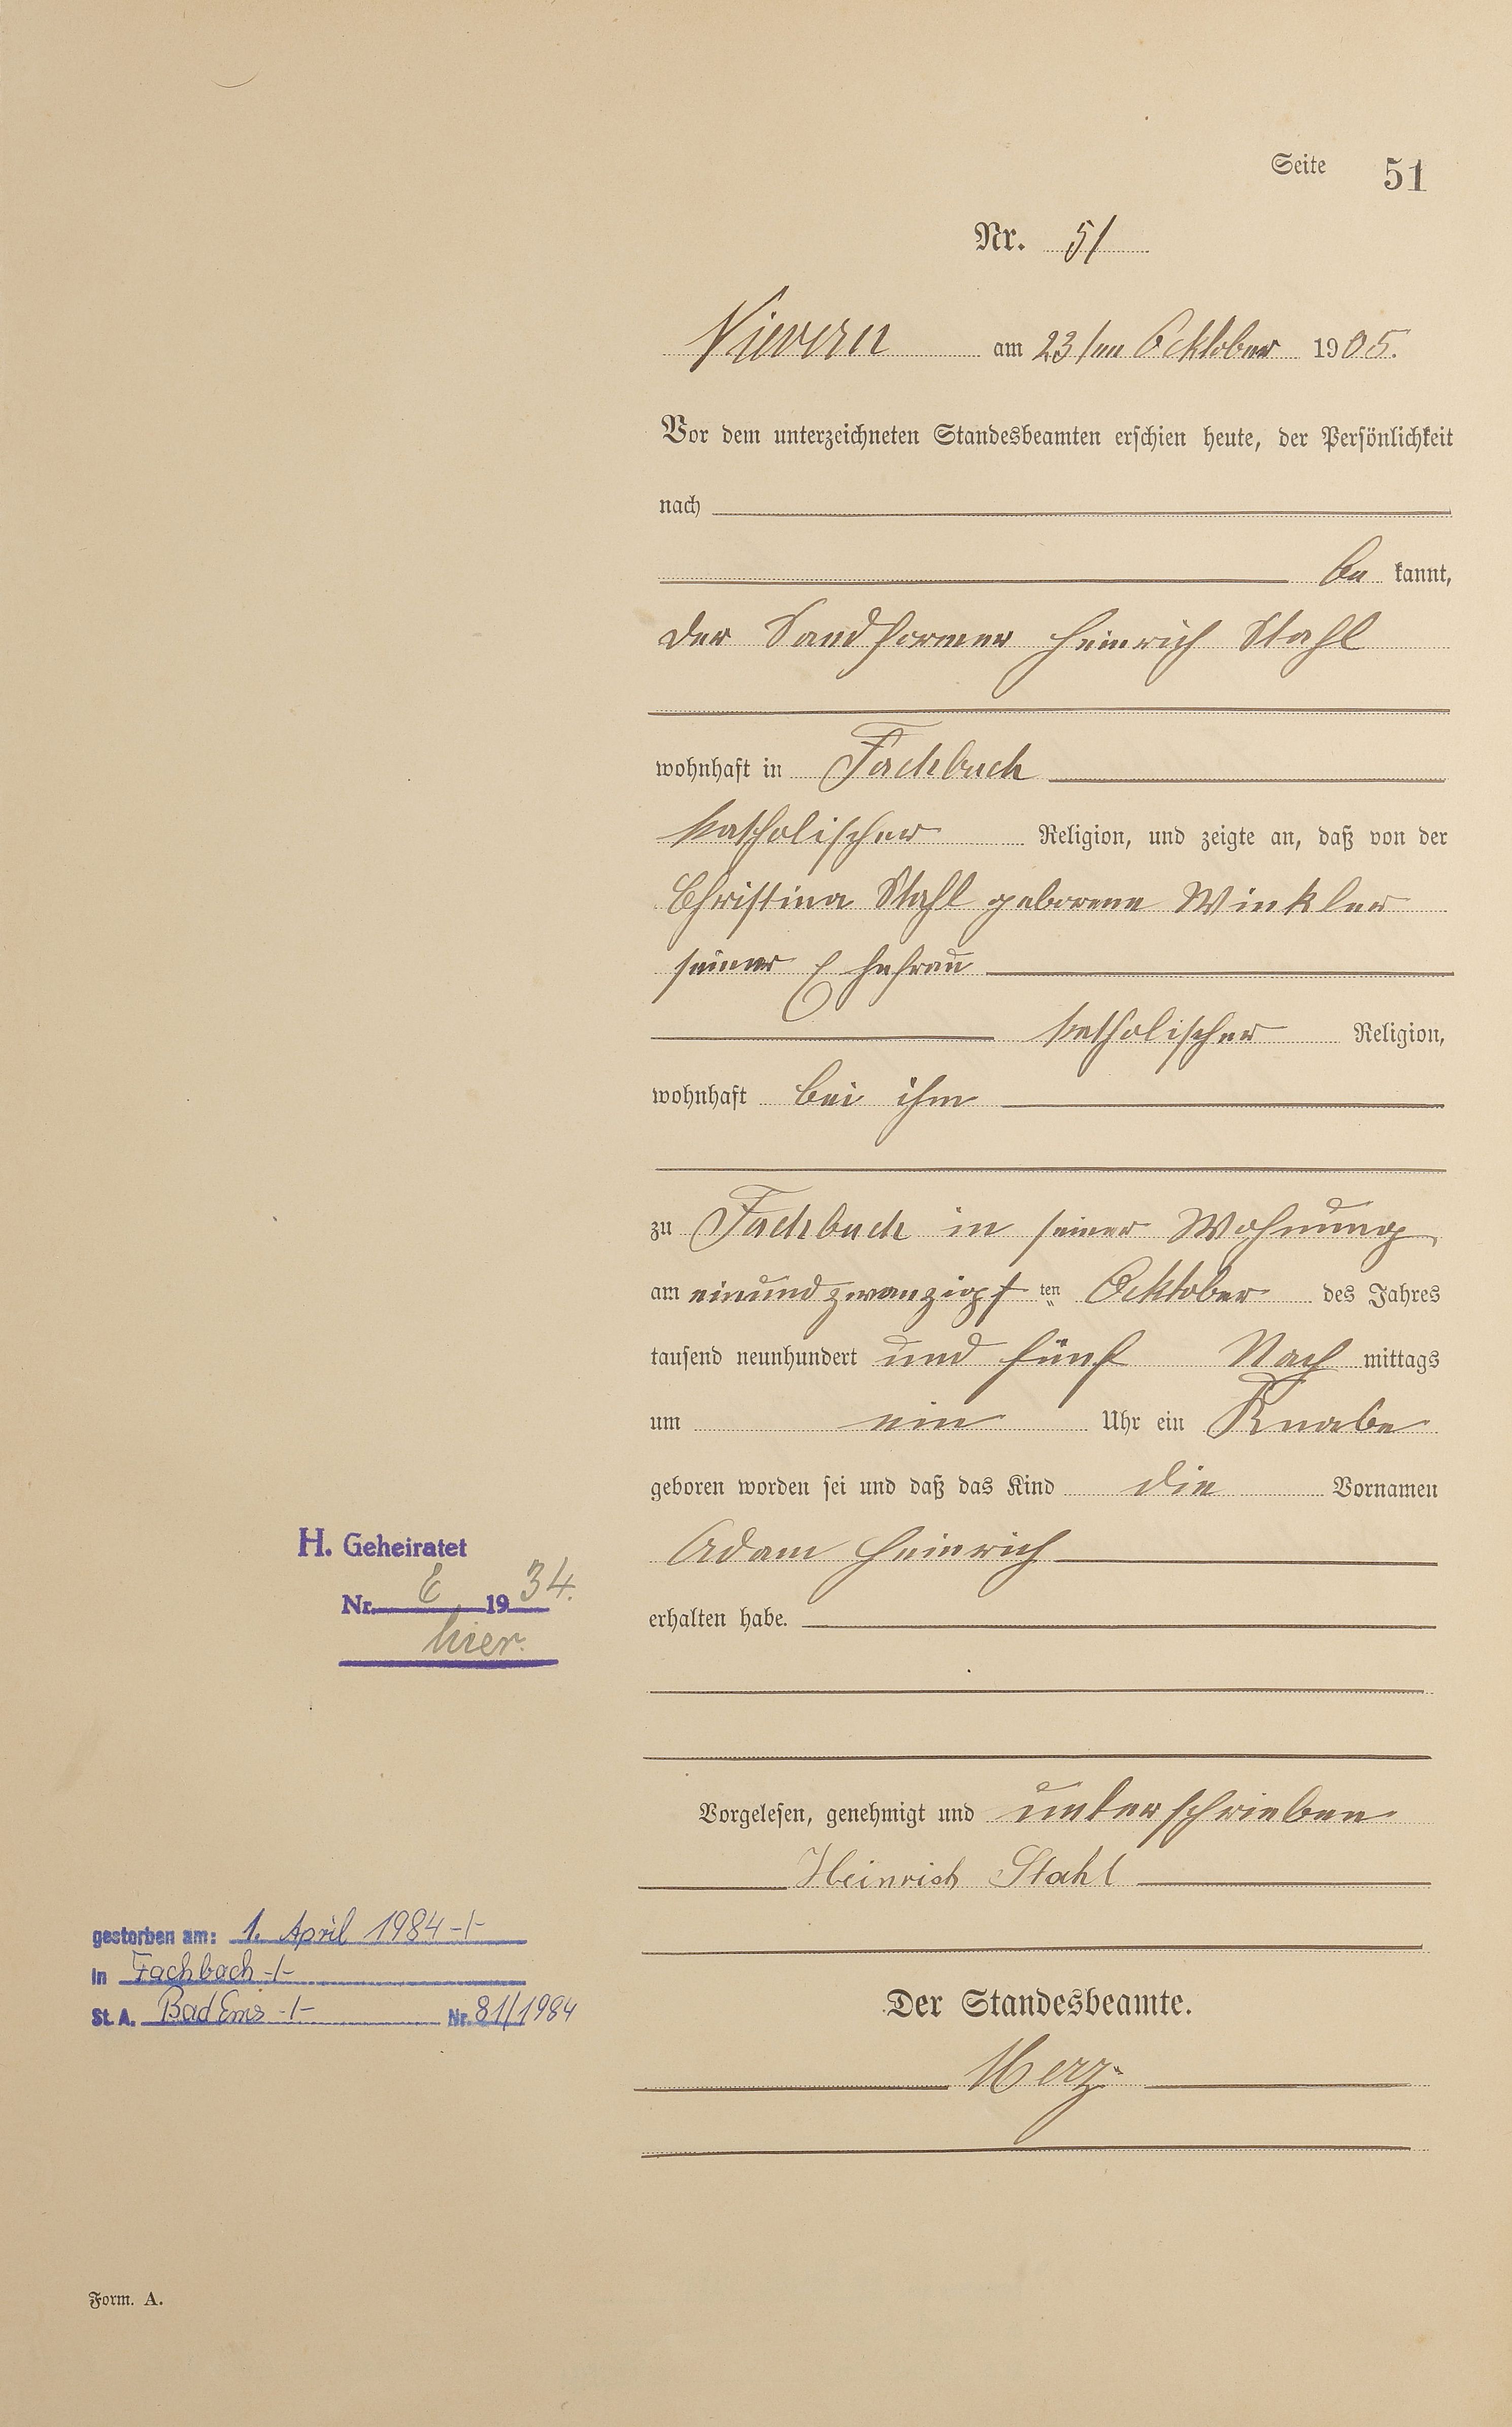 Seite 51
Nr. 51
Nievern am 23ten Ocktober 1905.
Vor dem unterzeichneten Standesbeamten erschien heute, der Persönlichkeit
nach
be kannt,
der Sandformer Heinrich Stahl
wohnhaft in Fachbach
katholischer Religion, und zeigte an, daß von der
Christina Stahl geborene Winkler
seiner Ehefrau
katholischer Religion,
wohnhaft bei ihm
zu Fachbach in seiner Wohnung
am einundzwanzigsten Ocktober des Jahres
tausend neunhundert und fünf Nach mittags
um ein Uhr ein Knabe
geboren worden sei und daß das Kind die Vornamen
Adam Heinrich
erhalten habe.
H. Geheiratet
Nr. 6 1934.
hier.
Vorgelesen, genehmigt und unterschrieben
Heinrich Stahl
gestorben am: 1. April 1984 -/-
in Fachbach -/-
St. A. Bad Ems -/- Nr. 81/1984
Der Standesbeamte.
Merz
Form. A.